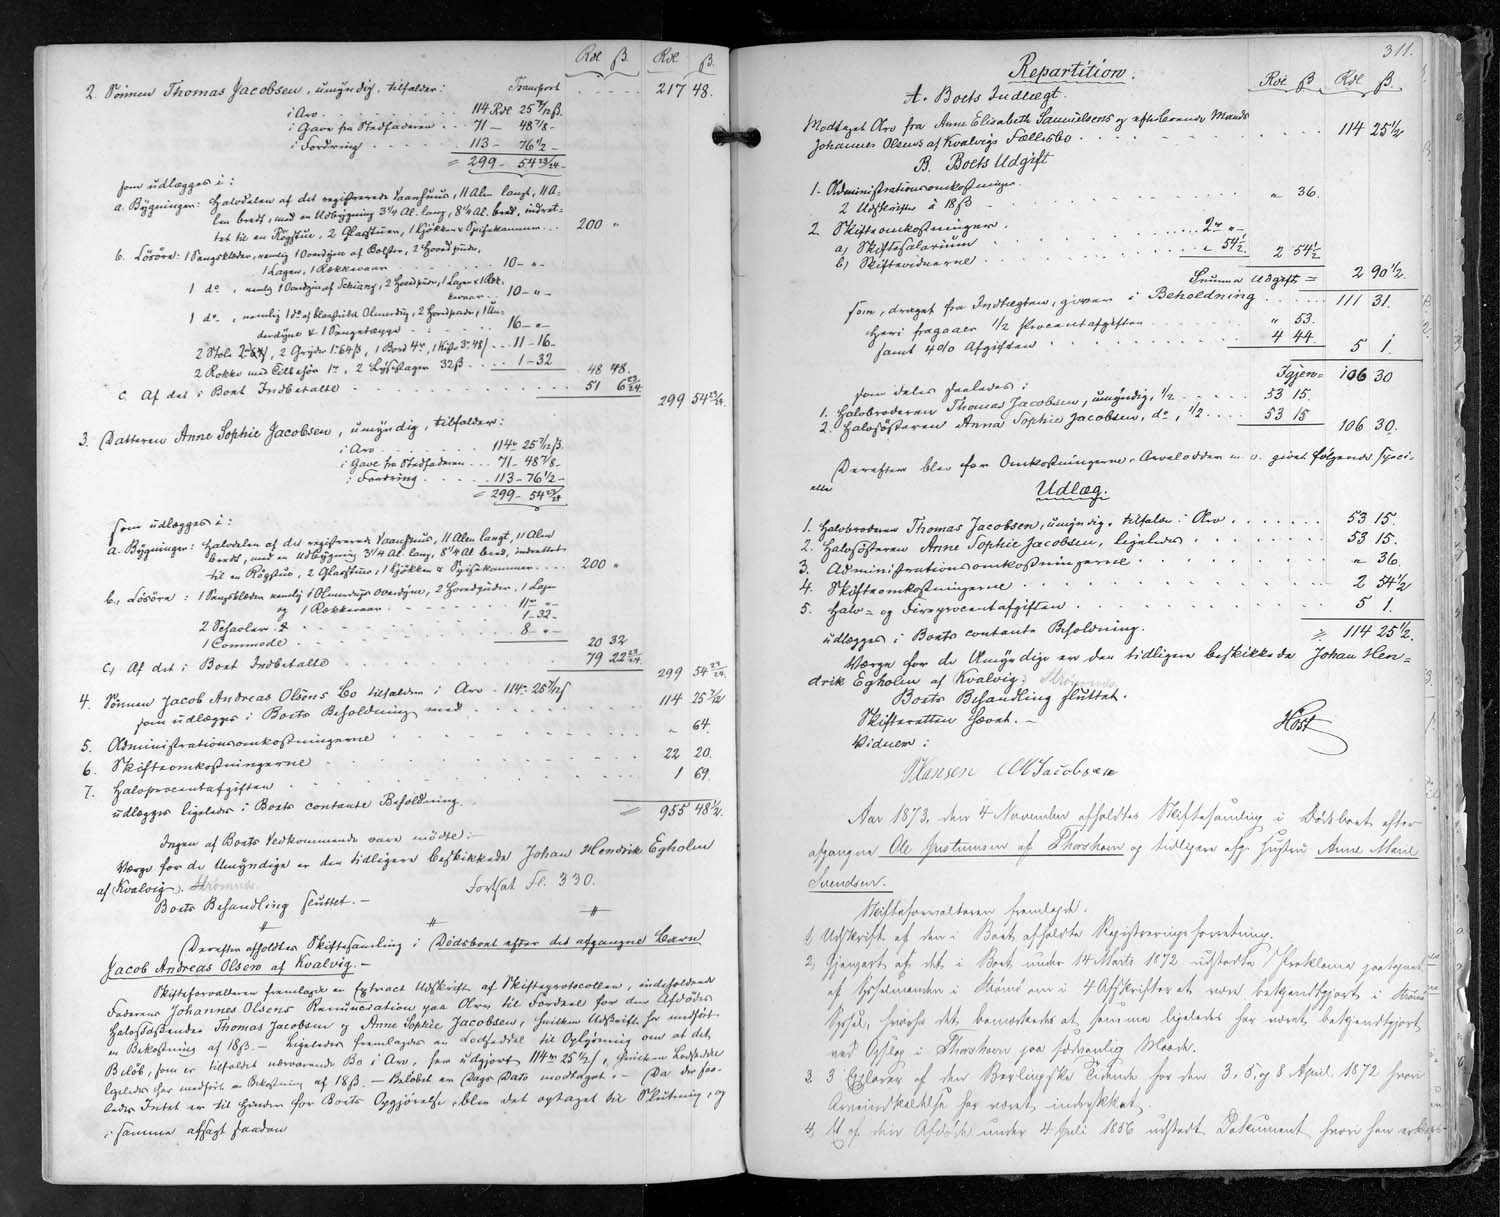 Rdl ß. Rdl ß.
2. Sönnen Thomas Jacobsen, umyndig, tilfalder: Transport 217 48.
i Arv 114 Rdl 25 7/12 ß.
i Gave fra Stedfaderen 71 – 48 7/8 –
i Fordring 113 – 76 1/2 –
= 299 – 54 23/24 –
som udlægges i:
a. Bygninger: Halvdelen af det registrerede Vaanhuus, 11 Alen langt, 11 A-
len bredt, med en Udbygning 3 1/4 Al. lang, 8 1/4 Al. bred, indret-
tet til en Rögstue, 2 Glasstuer, 1 Kjökken & Spisekammer 200 "
b. Lösöre: 1 Sengeklæder, nemlig 1 Overdyne af Bolster, 2 Hovedpuder,
1 Lagen, 1 Rækkevaar 10 – " –
1 do, nemlig 1 Overdyne af , 2 Hovedpuder, 1 Lagen & 1 Ræk-
kevaar 10 – " –
1 do, nemlig 1 do af blaastribet Olmerdug, 2 Hovedpuder, 1 Un-
derdyne & 1 Sengetæppe 16 – " –
2 Stole, 2 Gryder 1 64 ß, 1 Bord 4, 1 Kiste 3 48 ß 11 – 16 –
2 Rokke med Tilbehör 1, 2 Lysestager 32 ß 1 – 32 48 48.
c. Af det i Boet Indbetalte 51 6 23/24. 299 54 23/24.
3. Datteren Anne Sophie Jacobsen, umyndig, tilfalder:
i Arv 114 25 7/12 ß.
i Gave fra Stedfaderen 71 – 48 7/8 –
i Fordring 113 – 76 1/2 –
= 299 – 54 23/24
som udlægges i:
a. Bygninger: Halvdelen af det registrerede Vaanhuus, 11 Alen langt, 11 Alen
bredt, med en Udbygning 3 1/4 Al. lang, 8 1/4 Al. bred, indrettet
til en Rögstue, 2 Glasstuer, 1 Kjökken & Spisekammer 200 "
b. Lösöre: 1 Sengeklæder nemlig 1 Olmerdugs Overdyne, 2 Hovedpuder, 1 Lagen
og 1 Rækkevaar 11 " –
2 Schaaler & 1 – 32 –
1 Commode 8 – " – 20 32
c, Af det i Boet Indbetalte 79 22 23/24. 299 54 23/24.
4. Sönnen Jacob Andreas Olsens Bo tilfalder i Arv 114 25 7/12 ß
som udlægges i Boets Beholdning med 114 25 7/12
5. Administrationsomkostningerne " 64.
6. Skifteomkostningerne 22 20.
7. Halvprocentafgiften 1 69.
udlægges ligeledes i Boets contante Beholdning = 955 48 1/2.
Ingen af Boets Vedkommende vare mödte. –
Værge for de Umyndige er den tidligere beskikkede Johan Hendrik Egholm
af Kvalvig. Strömnæs. Fortsat Fl. 330.
Boets Behandling sluttet. –
Derefter afholdtes Skiftesamling i Dödsboet efter det afgangne Barn
Jacob Andreas Olsen af Kvalvig. –
Skifteforvalteren fremlagde en Extract Udskrift af Skifteprotocollen, indeholdende
Faderens Johannes Olsens Renunciation paa Arv til Fordeel for den Afdödes
Halvsödskende Thomas Jacobsen og Anne Sophie Jacobsen, hvilken Udskrift har medfört
en Bekostning af 18 ß. – Ligeledes fremlagdes en Lodseddel til Oplysning om at det
Belöb, som er tilfaldet nærværende Bo i Arv, har udgjort 114 25 1/2 ß, hvilken Lodseddel
ligeledes har medfört en Bekostning af 18 ß. – Belöbet er Dags Dato modtaget. – Da der saa-
ledes Intet er til Hinder for Boets Opgjörelse, blev det optaget til Slutning, og
i samme afsagt saadan
311.
Repartition. Rdl ß Rdl ß.
A. Boets Indtægt.
Modtaget Arv fra Anne Elisabeth Samuelsens og efterlevende Mands
Johannes Olsens af Kvalvigs Fællesbo 114 25 1/2
B. Boets Udgift
1. Administrationsomkostninger.
2 Udskrifter à 18 ß " 36.
2. Skifteomkostninger.
a) Skiftesalarium 2 " –
b) Skiftevidnerne " 54 1/2. 2 54 1/2
Summa Udgift = 2 90 1/2.
som, draget fra Indtægten, giver i Beholdning 111 31.
heri fragaaer 1/2 Procentafgiften " 53.
samt 4 % Afgiften 4 44. 5 1.
Igjen = 106 30
som deles saaledes:
1. Halvbroderen Thomas Jacobsen, umyndig, 1/2 53 15.
2. Halvsösteren Anna Sophie Jacobsen, do, 1/2 53 15 106 30.
Derefter blev for Omkostningerne, Arvelodder m. v. givet fölgende speci-
elle
Udlæg.
1. Halvbroderen Thomas Jacobsen, umyndig, tilfalder i Arv 53 15.
2. Halvsösteren Anne Sophie Jacobsen, ligeledes 53 15.
3. Administrationsomkostningerne " 36.
4. Skifteomkostningerne 2 54 1/2
5. Halv- og Fireprocentafgiften 5 1.
udlægges i Boets contante Beholdning. = 114 25 1/2.
Værge for de Umyndige er den tidligere beskikkede Johan Hen-
drik Egholm af Kvalvig. Strömnæs
Boets Behandling sluttet.
Skifteretten hævet. –
Höst
Vidner:
Hansen Jacobsen
Aar 1873, den 4 November afholdtes Skiftesamling i Dödsboet efter
afgangne Ole Justinussen af Thorshavn og tidligere afg. Hustru Anne Marie
Svendsen.
Skifteforvalteren fremlagde.
1, Udskrift af den i Boet afholdte Registreringsforretning.
2, Gjenpart af det i Boet under 14 Marts 1872 udstedte Proklama paategnet
af Sysselmanden i Strömö om i 4 Afskrifter at være bekjendtgjort i Strömö
Syssel, hvorhos det bemærkedes at samme ligeledes har været bekjendtgjort
ved Opslag i Thorshavn paa sædvanlig Maade.
3 3 Explarer af den Berlingske Tidende for den 3, 5, og 8 April 1872 hvori
Arveindkaldelse har været indrykket.
4, Et af den Afdöde under 4 Juli 1856 udstedt Dokument hvori han erklæ-